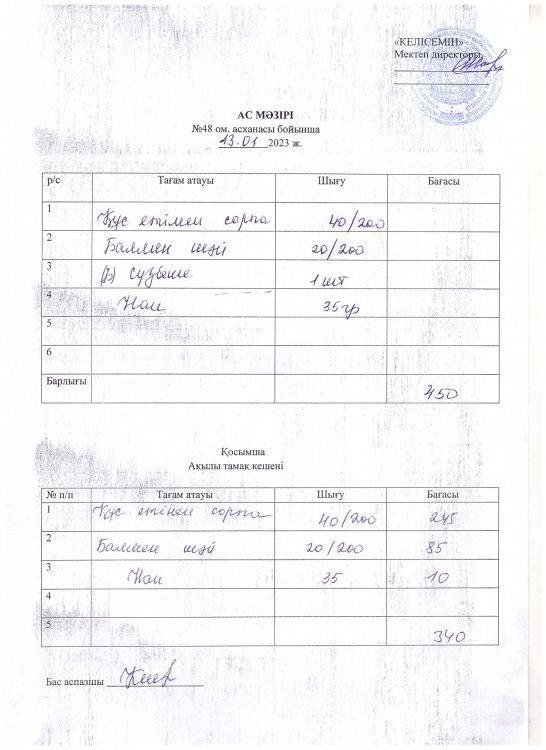 «КЕЛІСЕМІН»
Мектеп директоры
АС МӘЗІРІ
№48 ом. асханасы бойынша
13.01 2023 ж.
р/с Тағам атауы Шығу Бағасы
1 Құс етімен сорпа 40/200
2 Балмен шәй 20/200
3 сүзбеше 1 шт
4 Нан 35гр
5
6
Барлығы 450
Қосымша
Ақылы тамақ кешені
№ п/п Тағам атауы Шығу Бағасы
1 Құс етінен сорпа 40/200 245
2 Балмен шәй 20/200 85
3 Нан 35 10
4
5 340
Бас аспазшы